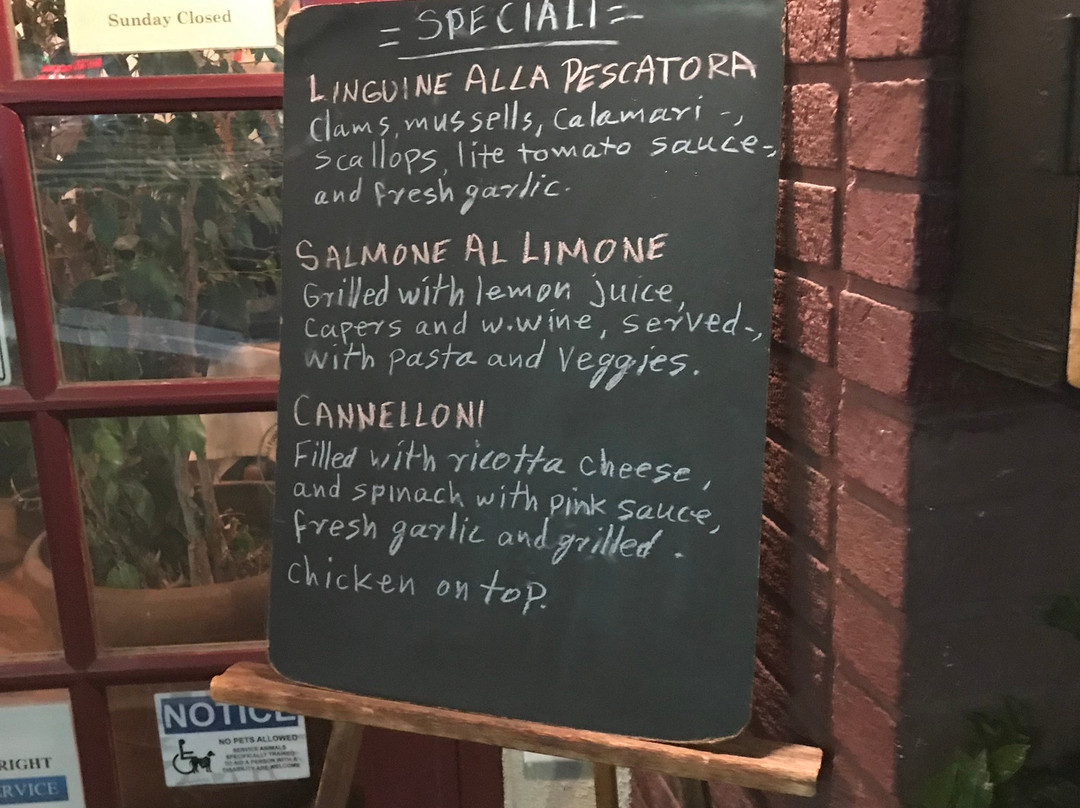 Sunday Closed
= SPECIALI =
LINGUINE ALLA PESCATORA
Clams, mussells, Calamari -,
scallops, lite tomato sauce-,
and fresh garlic.
SALMONE AL LIMONE
Grilled with lemon juice,
Capers and w.wine, served-,
with pasta and Veggies.
CANNELLONI
Filled with ricotta cheese,
and spinach with pink sauce,
fresh garlic and grilled -
chicken on top.
NOTICE
NO PETS ALLOWED
SERVICE ANIMALS
SPECIFICALLY TRAINED
TO AID A PERSON WITH A
DISABILITY ARE WELCOME
RIGHT
ERVICE